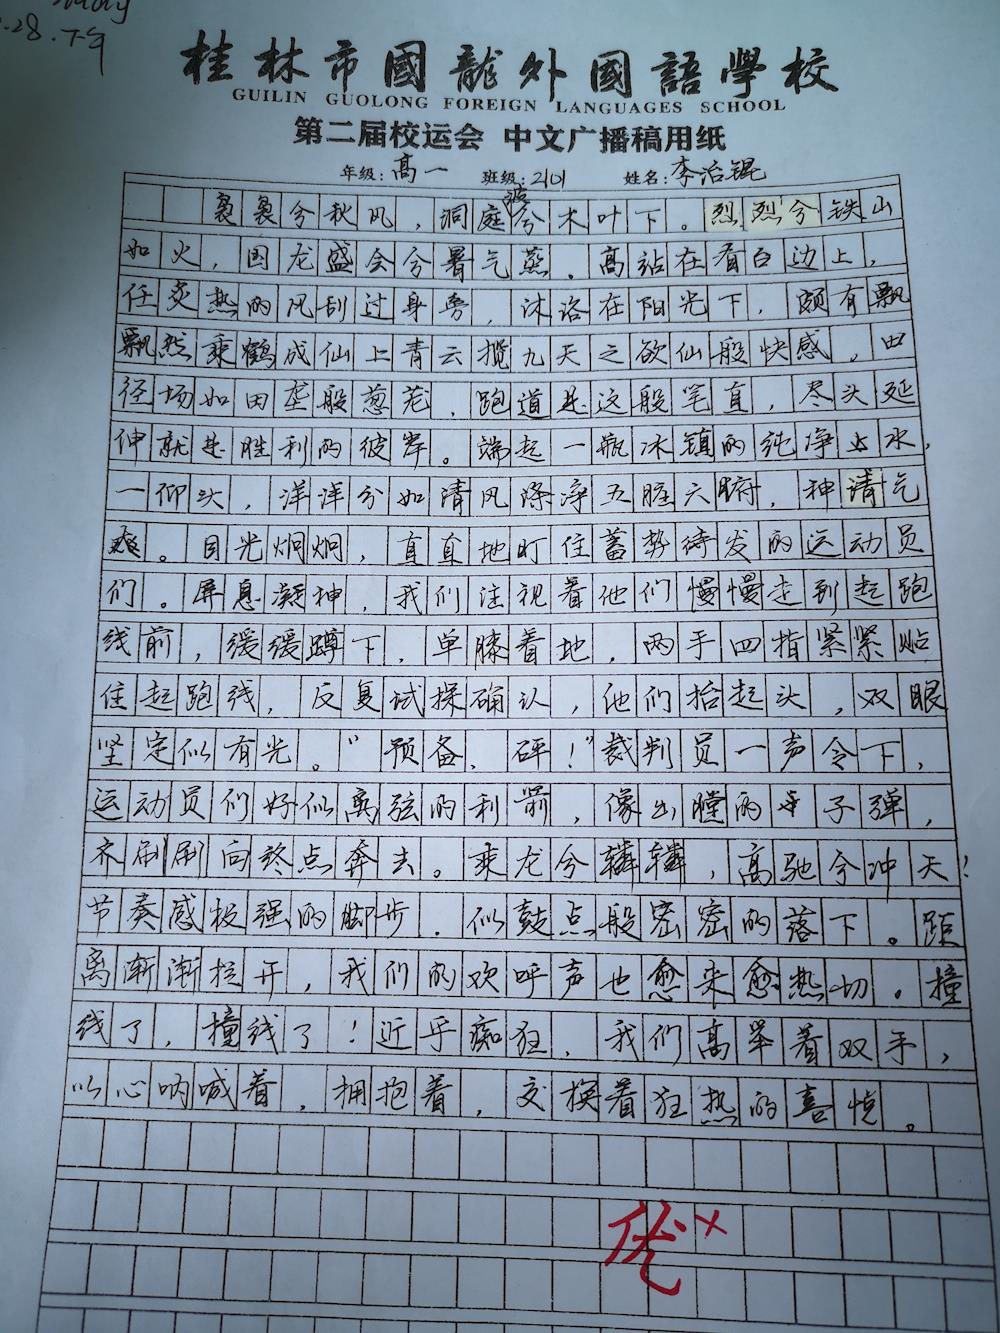 .28.下午
桂林市國龍外國語學校
GUILIN GUOLONG FOREIGN LANGUAGES SCHOOL
第二届校运会 中文广播稿用纸
年级:高一 班级:2101 姓名:李治锟
袅袅兮秋风,洞庭波兮木叶下。烈烈兮铁山
如火,国龙盛会兮暑气蒸。高站在看台边上,
任炎热的风刮过身旁,沐浴在阳光下,颇有飘
飘然乘鹤成仙上青云揽九天之欲仙般快感。田
径场如田垄般葱茏,跑道是这般笔直,尽头延
伸就是胜利的彼岸。端起一瓶冰镇的纯净水,
一仰头,洋洋兮如清风涤净五脏六腑,神清气
爽。目光炯炯,直直地盯住蓄势待发的运动员
们。屏息凝神,我们注视着他们慢慢走到起跑
线前,缓缓蹲下,单膝着地,两手四指紧紧贴
住起跑线,反复试探确认,他们抬起头,双眼
坚定似有光。“预备,砰!”裁判员一声令下,
运动员们好似离弦的利箭,像出膛的子弹,
齐刷刷向终点奔去。乘龙兮辚辚,高驰兮冲天!
节奏感极强的脚步,似鼓点般密密的落下。距
离渐渐拉开,我们的欢呼声也愈来愈热切。撞
线了,撞线了!近乎痴狂,我们高举着双手,
以心呐喊着,拥抱着,交换着狂热的喜悦。
优